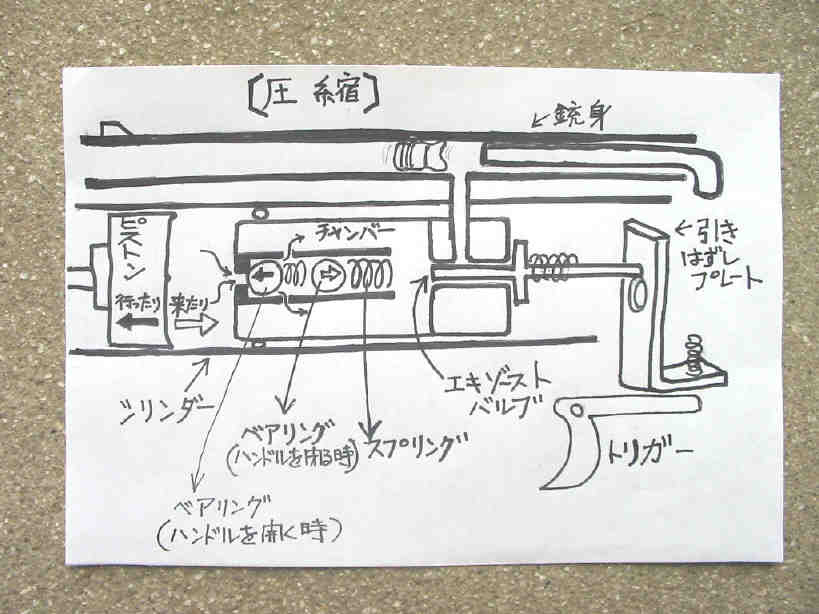 [圧縮]
←銃身
ピストン
行ったり
来たり
チャンバー
←引き
はずし
プレート
シリンダー
ベアリング
(ハンドルを閉る時)
スプリング
エキゾースト
バルブ
トリガー
ベアリング
(ハンドルを開く時)